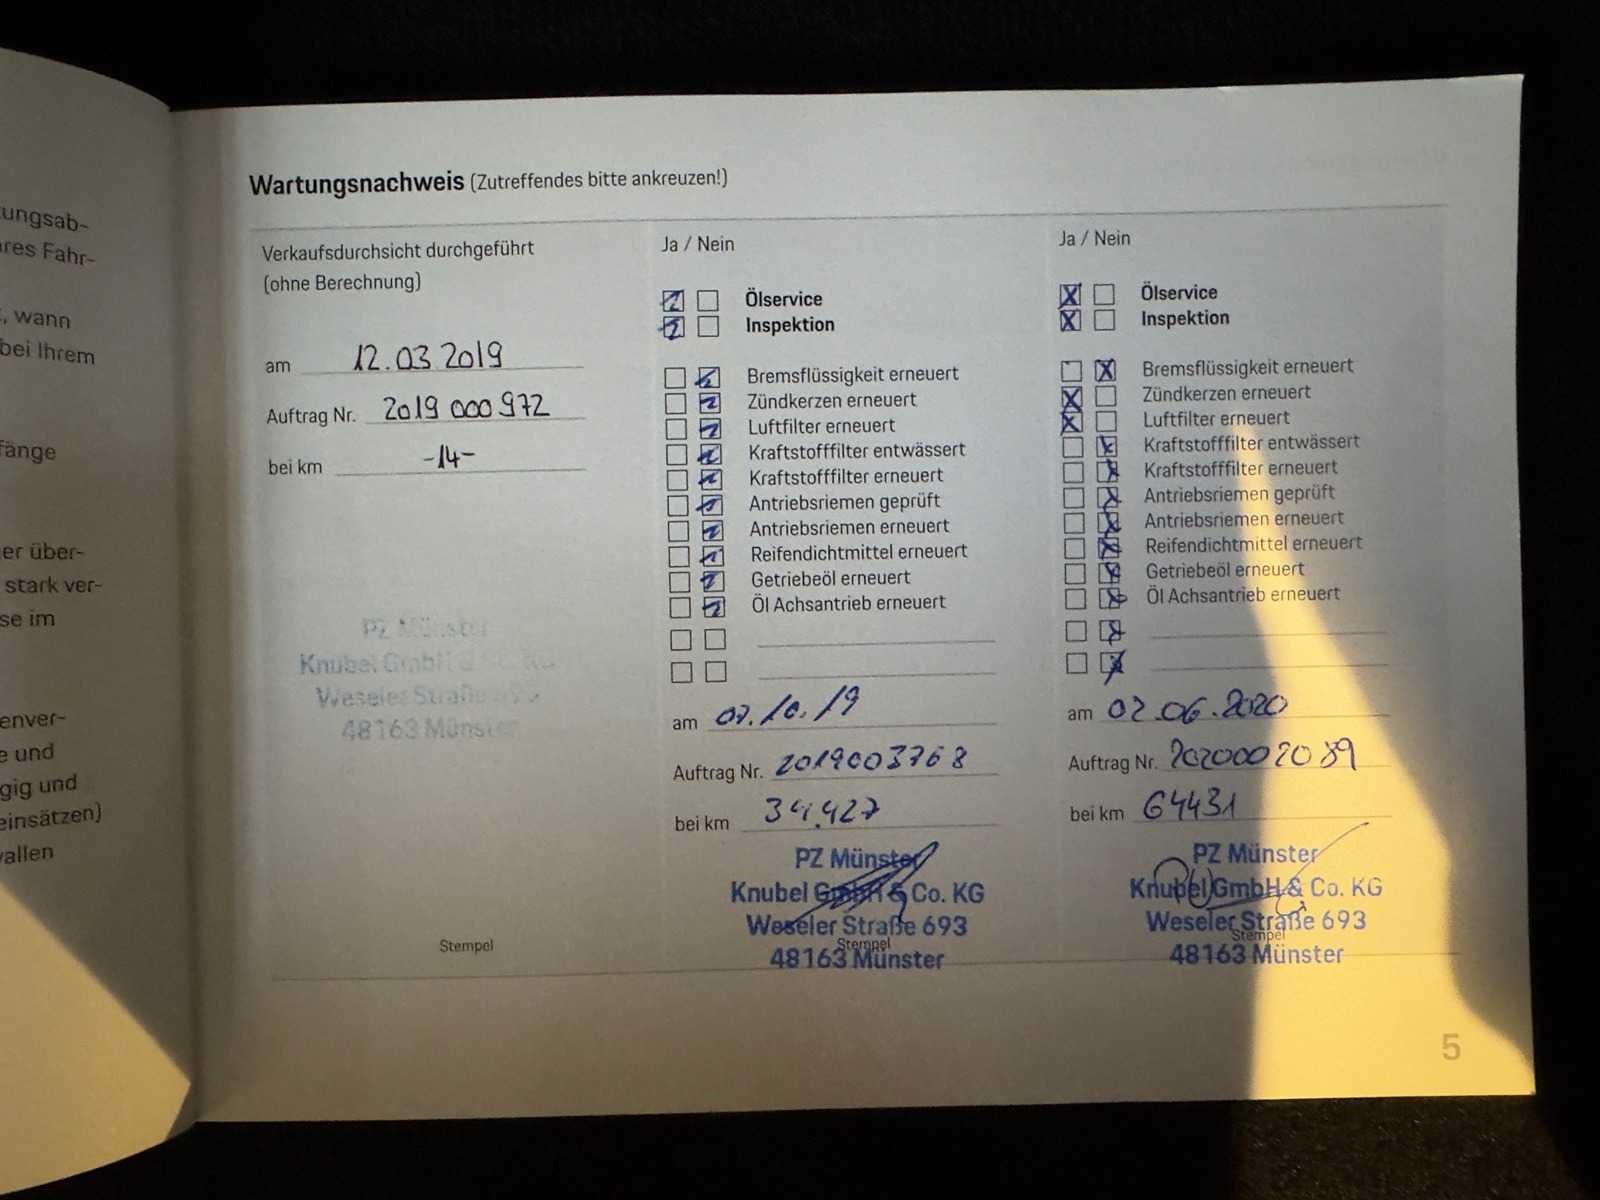 tungsab-
res Fahr-
, wann
bei Ihrem
fänge
er über-
stark ver-
se im
enver-
e und
gig und
einsätzen)
vallen
Wartungsnachweis (Zutreffendes bitte ankreuzen!)
Verkaufsdurchsicht durchgeführt
(ohne Berechnung)
am 12.03.2019
Auftrag Nr. 2019 000 972
bei km -14-
PZ Münster
Knubel GmbH & Co. KG
Weseler Straße 693
48163 Münster
Stempel
Ja / Nein
Ölservice
Inspektion
Bremsflüssigkeit erneuert
Zündkerzen erneuert
Luftfilter erneuert
Kraftstofffilter entwässert
Kraftstofffilter erneuert
Antriebsriemen geprüft
Antriebsriemen erneuert
Reifendichtmittel erneuert
Getriebeöl erneuert
Öl Achsantrieb erneuert
am 07.10.19
Auftrag Nr. 2019003768
bei km 34.427
PZ Münster
Knubel GmbH & Co. KG
Weseler Straße 693
Stempel
48163 Münster
Ja / Nein
Ölservice
Inspektion
Bremsflüssigkeit erneuert
Zündkerzen erneuert
Luftfilter erneuert
Kraftstofffilter entwässert
Kraftstofffilter erneuert
Antriebsriemen geprüft
Antriebsriemen erneuert
Reifendichtmittel erneuert
Getriebeöl erneuert
Öl Achsantrieb erneuert
am 02.06.2020
Auftrag Nr. 2020002089
bei km 64431
PZ Münster
Knubel GmbH & Co. KG
Weseler Straße 693
Stempel
48163 Münster
5